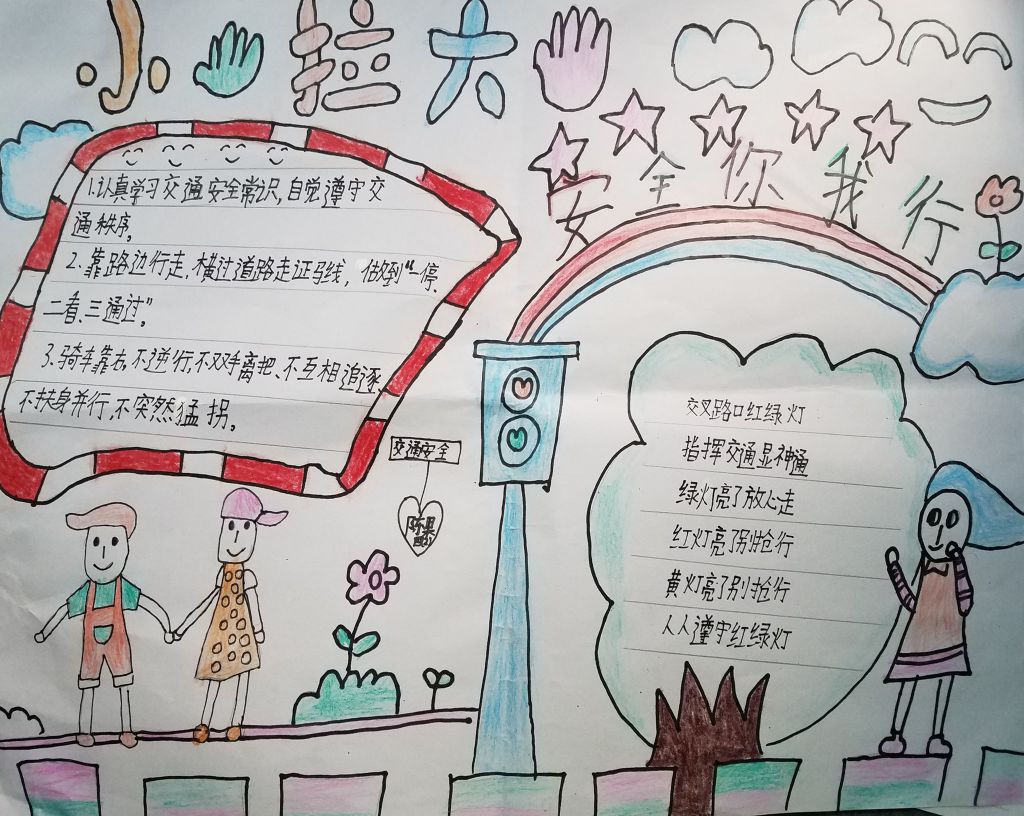 小 拉大
安全你我行
1.认真学习交通安全常识,自觉遵守交
通秩序。
2.靠路边行走,横过道路走证马线,做到“一停、
二看、三通过”。
3.骑车靠右,不逆行,不双手离把、不互相追逐,
不扶身并行,不突然猛拐。
交通安全
交叉路口红绿灯
指挥交通显神通
绿灯亮了放心走
红灯亮了别抢行
黄灯亮了别抢行
人人遵守红绿灯